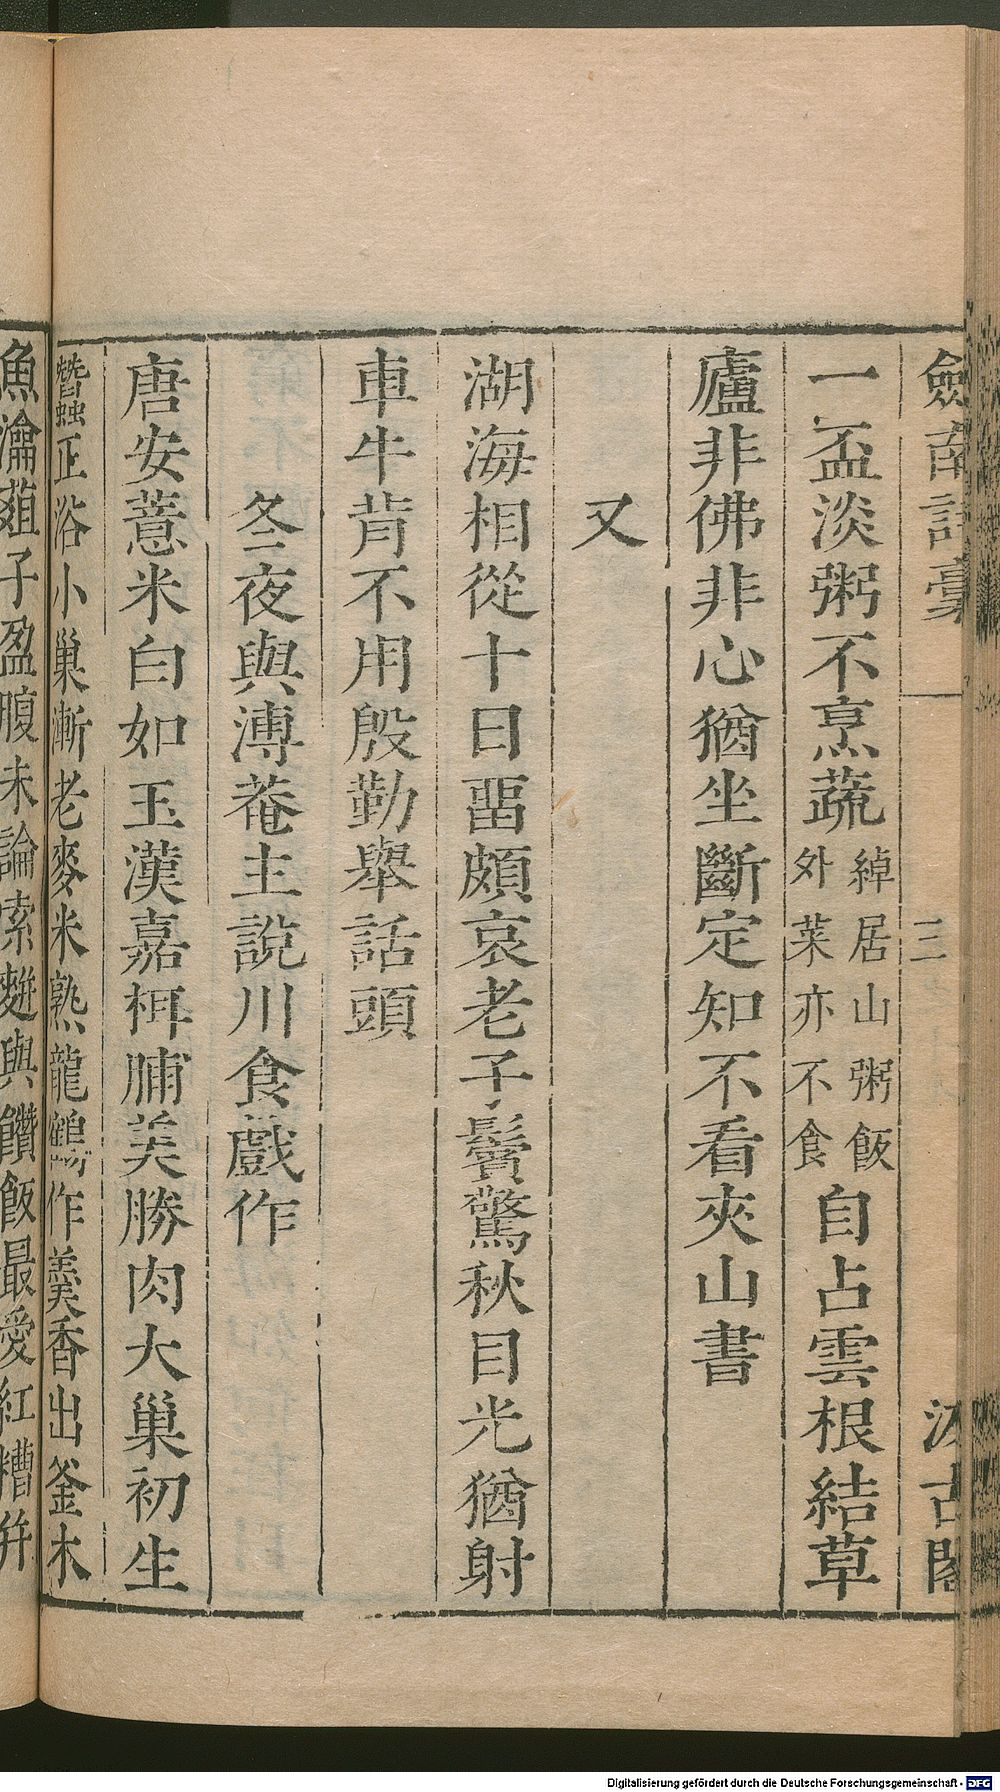 劍南詩稾 三 汲古閣
一盃淡粥不烹蔬綽居山粥飯外菜亦不食自占雲根結草
廬非佛非心猶坐斷定知不看夾山書
又
湖海相從十日畱頗哀老子鬢驚秋目光猶射
車牛背不用殷勤舉話頭
冬夜與溥菴主說川食戲作
唐安薏米白如玉漢嘉栮脯美勝肉大巢初生
蠶正浴小巢漸老麥米熟龍鶴作羹香出釜木
魚瀹葅子盈腹未論索麪與饡飯最愛紅糟幷
Digitalisierung gefördert durch die Deutsche Forschungsgemeinschaft - DFG